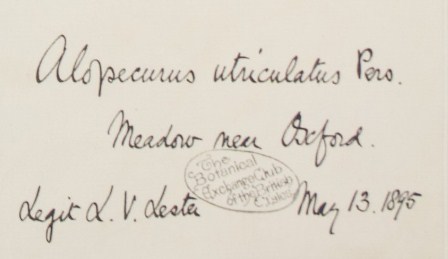 Alopecurus utriculatus Pers.
Meadow near Oxford.
The
Botanical
Exchange Club
of the British
Isles
Legit L. V. Lester May 13. 1895